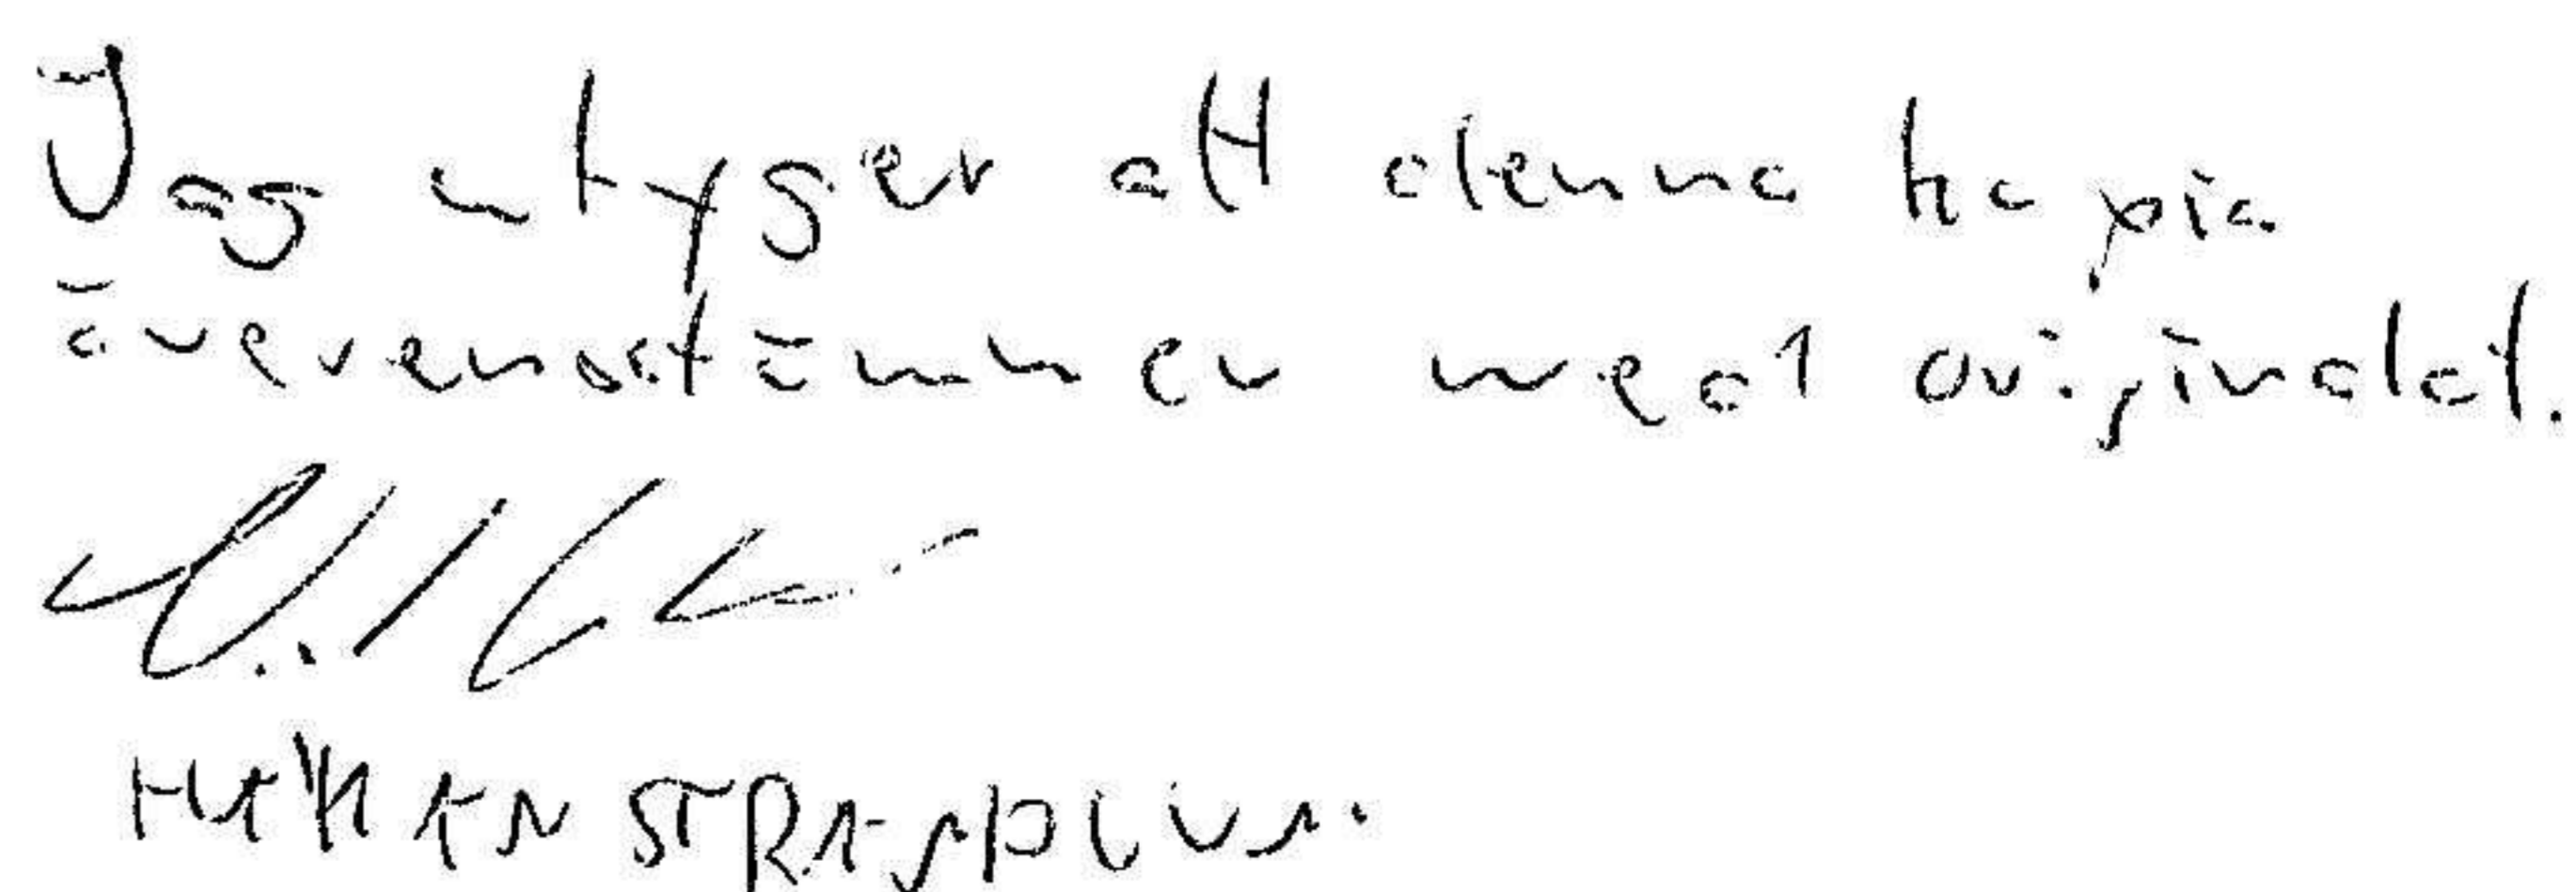 Jag intyger att denna kopia
överensstämmer med originalet.
HÅKAN STRANDLUN